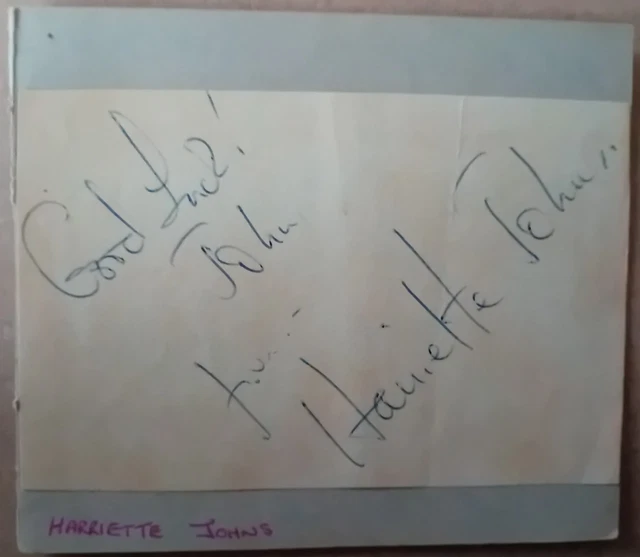 Good Luck!
John
from
Harriette Johns
HARRIETTE JOHNS